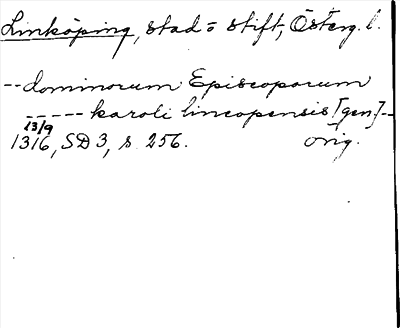 Linköping, stad o stift, Österg. l.
-- dominorum Episcoporum
----- karoli lincopensis [gen.] --
13/9
1316, SD 3, s. 256. orig.